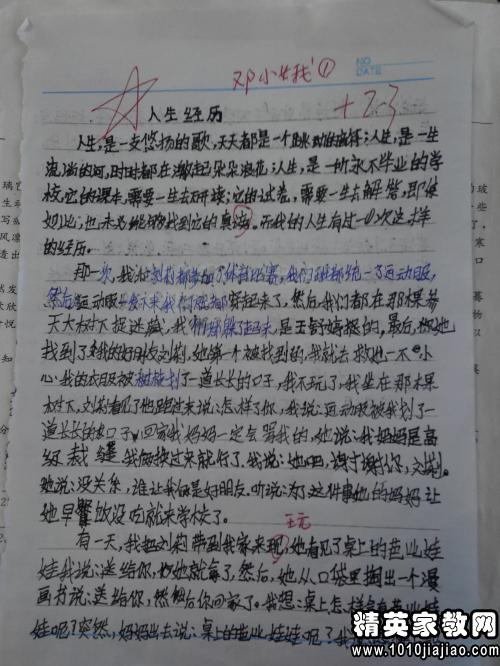 邓小我①
NO
DATE
+23
人生经历
人生,是一支悠扬的歌,天天都是一个跳动的音符;人生,是一生
流淌的河,时时都在激起朵朵浪花;人生,是一所永不毕业的学
校,它的课本,需要一生去研读;它的试卷,需要一生去解答,即使
如此,也未必能够找到它的真谛。而我的人生有过一次这样
的经历。
那一次,我和刘莉都参加了体育比赛,我们班都统一了运动服,
然后运动服发下来我们就都穿起来了。然后我们都在那棵参
天大树下捉迷藏,我们都躲了起来,是王舒婷抓的,最后,她
找到了我的好朋友刘莉,她第一个被找到的,我就去救她一不小
心,我的衣服被树枝划了一道长长的口子,我不玩了,我坐在那棵
树下,刘莉看见了她跑过来说:怎样了你,我说:运动服被我划了一
道长长的口子,回家我妈妈一定会骂我的,她说:我妈妈是高
级裁缝,我俩换过来就行了。我说:她吧,谢谢你,刘莉。
她说:没关系,谁让我俩是好朋友。听说:为了这件事她的妈妈让
她早餐饭没吃就来学校了。
玩
有一天,我把刘莉带到我家来玩,她看见了桌上的芭比娃
娃我说:送给你,她就要了,然后,她从口袋里掏出一个漫
画书说:送给你,然后你回家了。我想:桌上怎样会有芭比娃
娃呢?突然,妈妈出去说:桌上的芭比娃娃呢?我
精英家教网
www.1010jiajiao.com